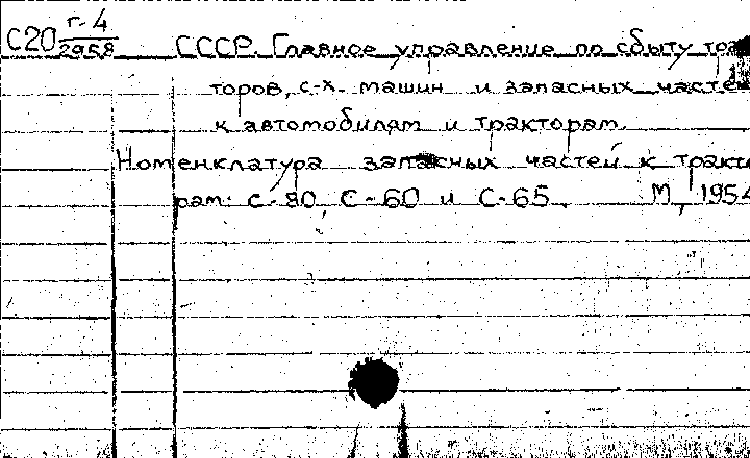 С20 г-4
2958
СССР. Главное управление по сбыту трак
торов, с-х. машин и запасных частей
к автомобилям и тракторам.
Номенклатура запасных частей к тракто
рам: С-80, С-60 и С-65. М., 1954